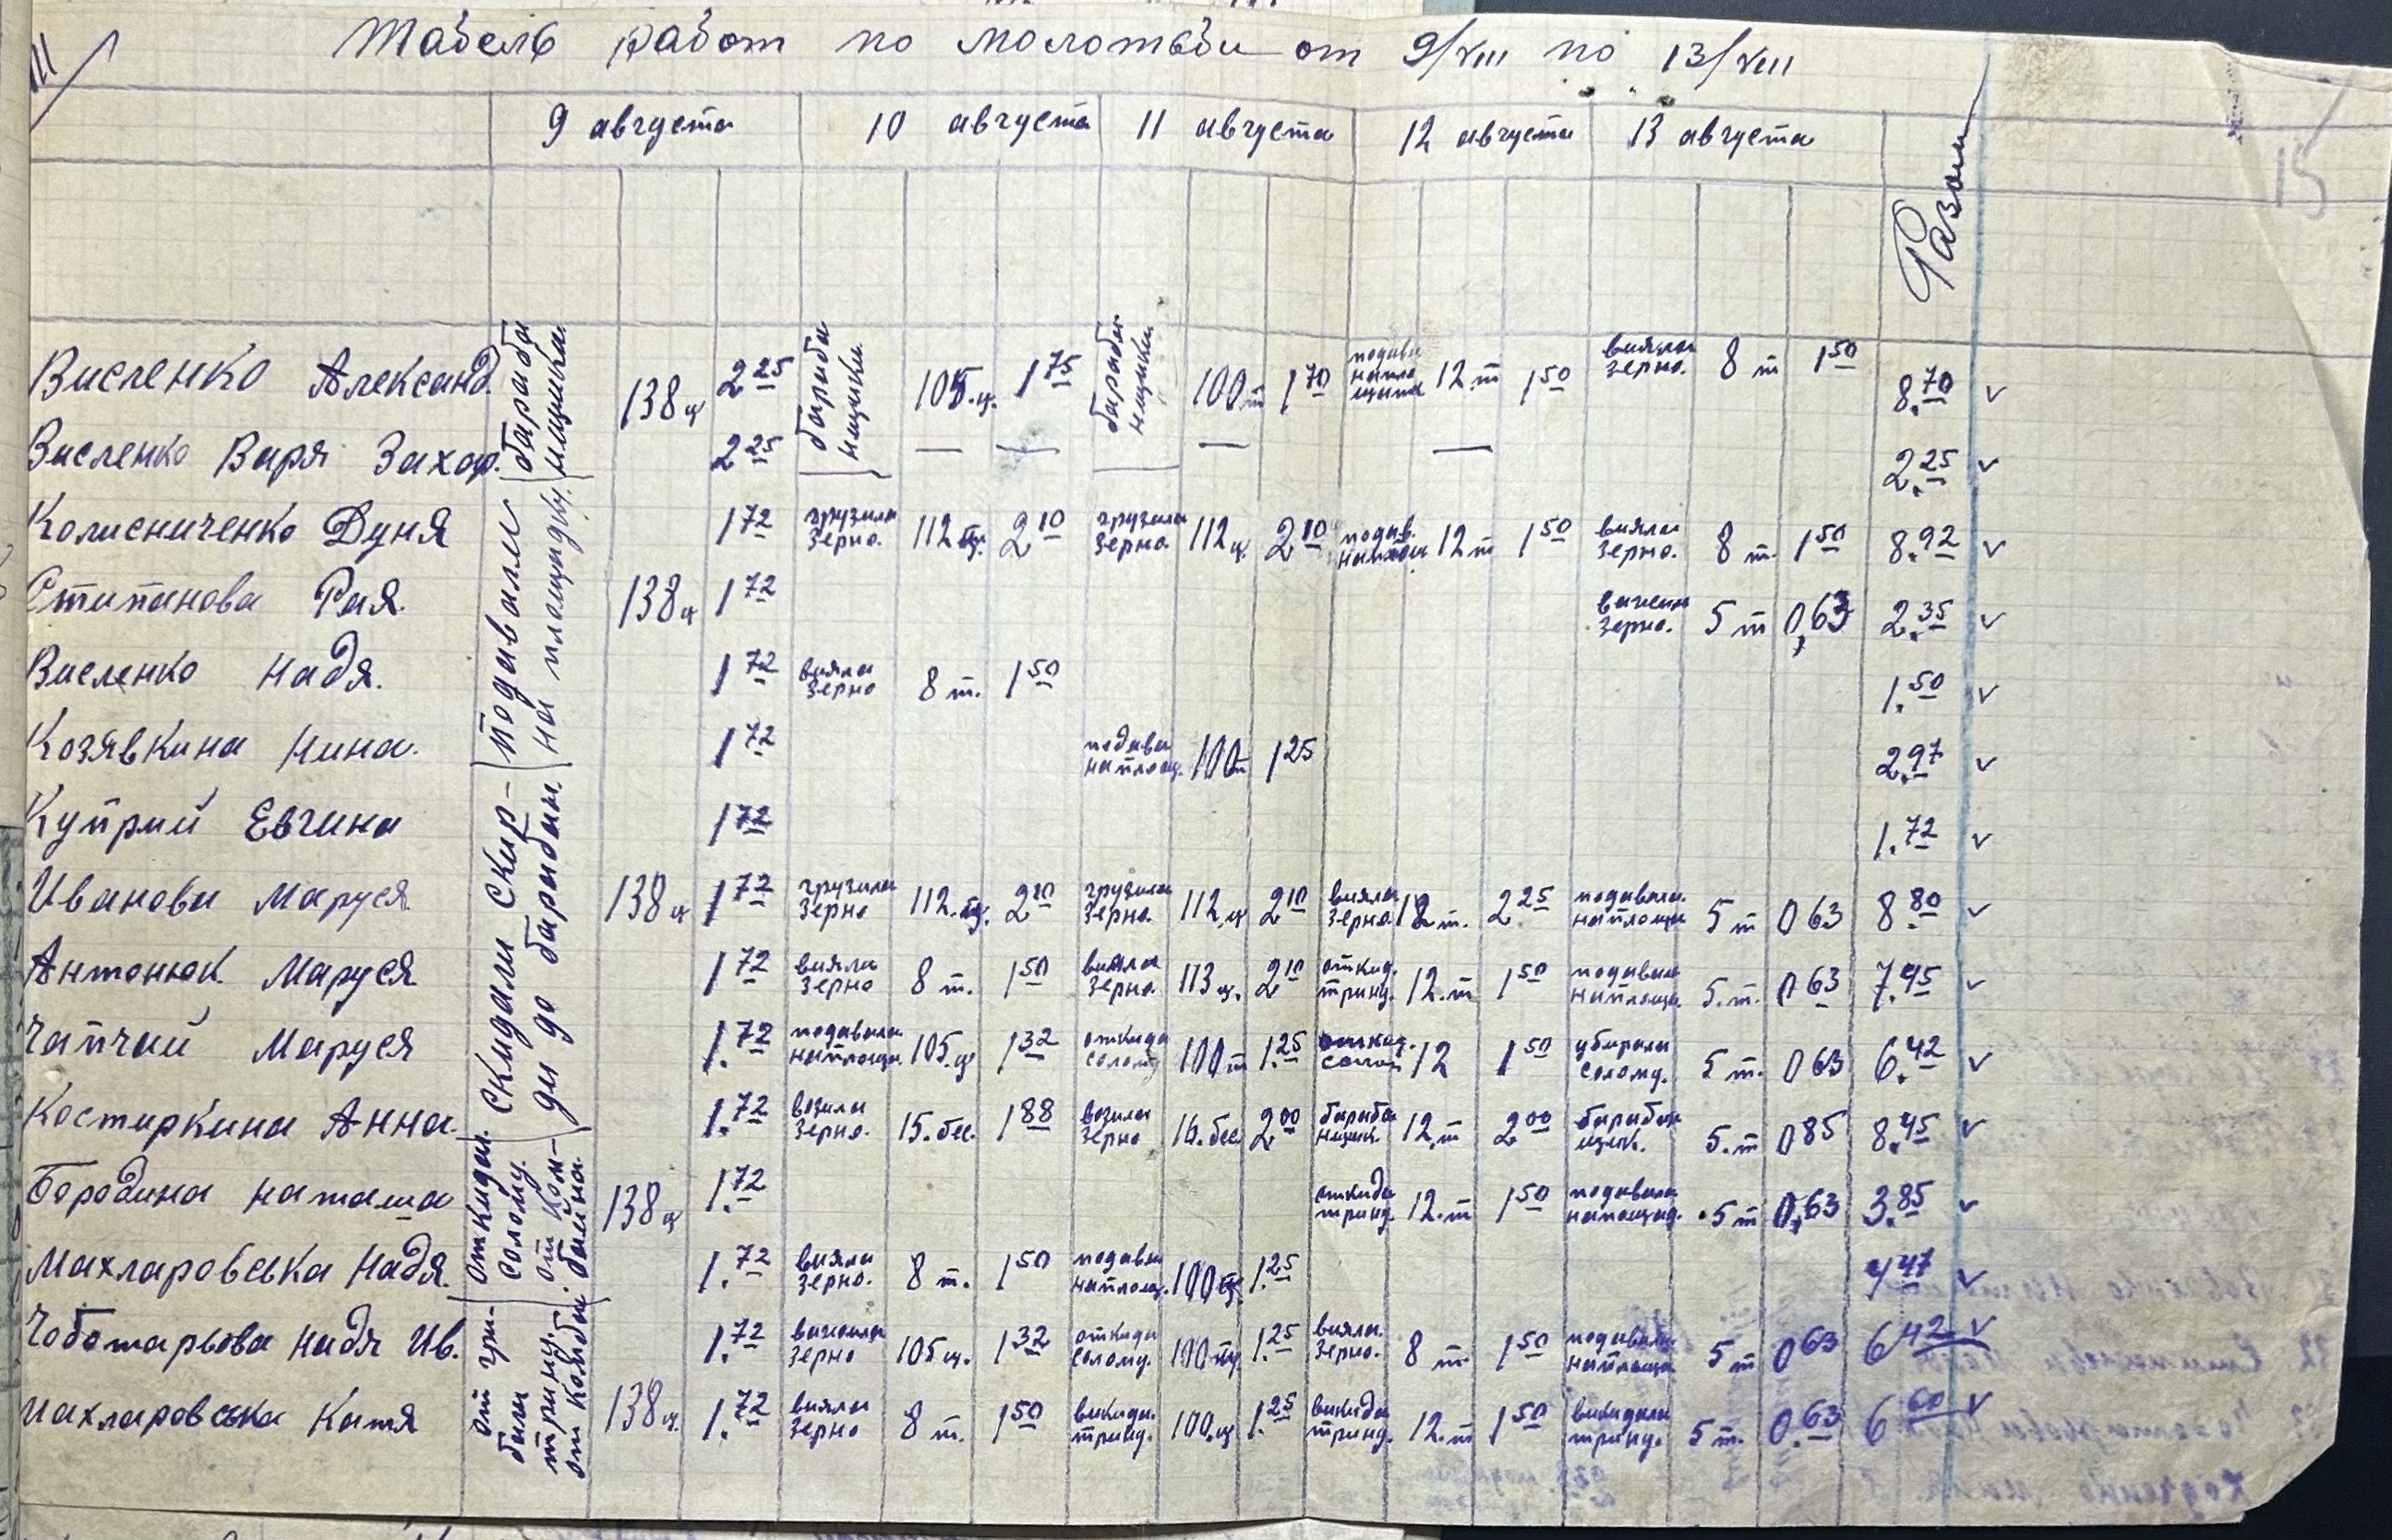 Табель работ по молотьби от 9/VIII по 13/VIII
15
9 августа 10 августа 11 августа 12 августа 13 августа Разом
барабанщики
подавали на площадку
скидали скирди до барабан.
откидал. солому от комбайна.
отгрибали трину от комбай.
Висленко Александ. 138 ц 2 25 барабанщики 105.ц. 1 75 барабанщики 100 т 1 70 подавал на площадк 12.т 1 50 виялы зерно. 8 т 1 50 8.70 v
Висленко Варя Захар. 2 25 — — — — 2.25 v
Колисниченко Дуня 1 72 грузила зерно. 112 ц. 2 10 грузила зерно 112 ц 2 10 подав. на площ 12 т 1 50 вияла зерно. 8 т. 1 50 8.92 v
Стипанова Рая. 138 ц 1 72 зерно. 5 т 0,63 2.35 v
Висленко Надя. 1 72 вияла зерно 8 т. 1 50 1.50 v
Козявкина Нина. 1 72 подава на площ. 100 т 1 25 2.97 v
Куприй Евгина 1 72 1.72 v
Иванова Маруся 138 ц 1 72 грузила зерно 112.ц. 2 10 грузила зерно. 112 ц 2 10 вияла зерно 12 т. 2 25 подавала на площа 5 т 0 63 8.80 v
Антонюк Маруся 1 72 вияла зерно 8 т. 1 50 вияла зерно. 113 ц. 2 10 откид. тринд. 12.т 1 50 подавала на площа 5.т. 0 63 7.45 v
Чапчай Маруся 1.72 подавала на площа. 105.ц 1 32 откида солому 100 т 1.25 откид. солом 12 1 50 убирала солому. 5 т. 0 63 6.42 v
Костиркина Анна. 1.72 возила зерно. 15.бес. 1 88 возила зерно 16.бес 2 00 барабанщик. 12.т 2 00 барабанщик. 5.т 0 85 8.45 v
Бородина наташа 138 ц 1.72 откида тринд. 12.т 1 50 подавала на площад. 5 т 0,63 3.85 v
Махларовська Надя. 1.72 вияла зерно. 8 т. 1 50 подавал на площ. 100 ц. 1.25 4 47 v
Чоботарьова Надя Ив. 1.72 зерно 105 ц. 1 32 откида солому. 100 ц. 1.25 вияла зерно. 8 т. 1 50 подавала на площа 5 т 0 63 6 42 v
Махларовська Катя 138 ц. 1.72 вияла зерно 8 т. 1 50 викида. тринд. 100.ц 1.25 викида тринд. 12.т 1 50 викидала тринд. 5 т. 0.63 6 60 v